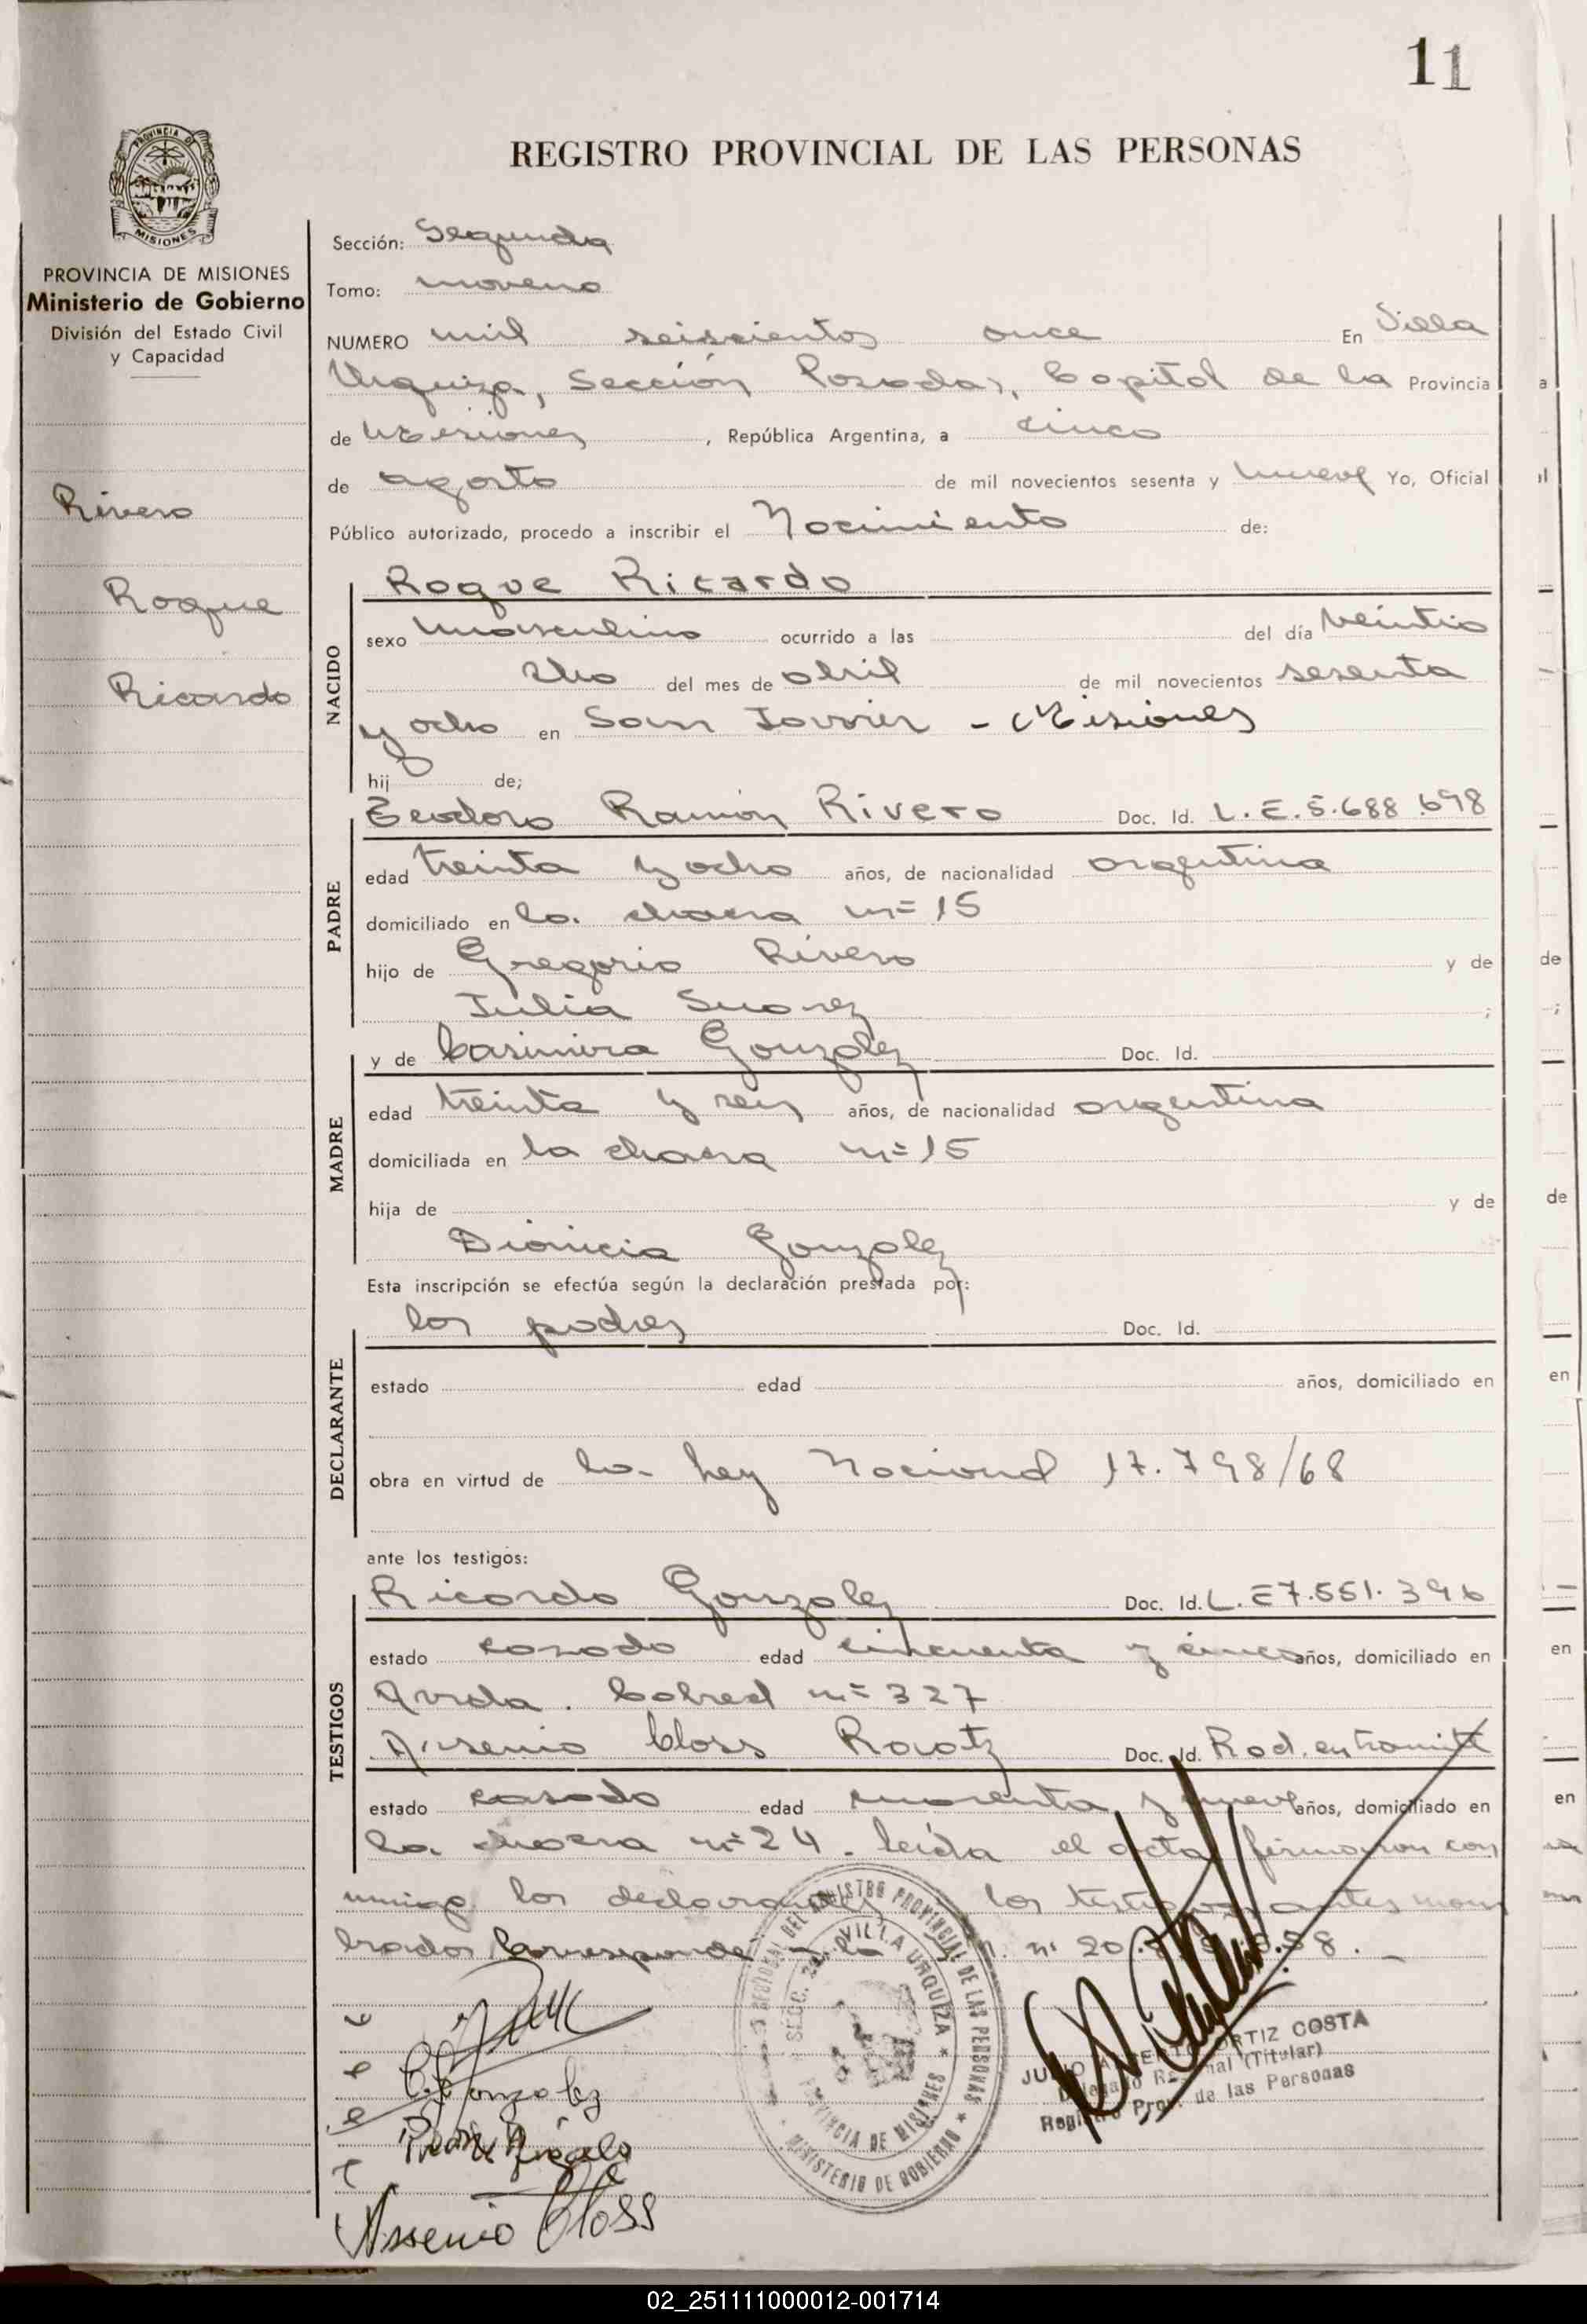 11
REGISTRO PROVINCIAL DE LAS PERSONAS
PROVINCIA DE MISIONES
Ministerio de Gobierno
División del Estado Civil
y Capacidad
Rivero
Roque
Ricardo
Sección: Segunda
Tomo: noveno
NUMERO mil seiscientos once En Villa
Urquiza, Sección Posadas, Capital de la Provincia
de Misiones, República Argentina, a cinco
de agosto de mil novecientos sesenta y nueve Yo, Oficial
Público autorizado, procedo a inscribir el Nacimiento de:
NACIDO
Roque Ricardo
sexo masculino ocurrido a las del día veinti
del mes de abril de mil novecientos sesenta
y ocho en San Javier - Misiones
hij de;
PADRE
Teodoro Ramón Rivero Doc. Id. L.E.5.688.698
edad treinta y ocho años, de nacionalidad argentina
domiciliado en la chacra nº 15
hijo de Gregorio Rivero y de
Julia Suarez ;
MADRE
y de Casimira Gonzalez Doc. Id.
edad treinta y seis años, de nacionalidad argentina
domiciliada en la chacra nº 15
hija de y de
Dionicia Gonzalez
Esta inscripción se efectúa según la declaración prestada por:
DECLARANTE
los padres Doc. Id.
estado edad años, domiciliado en
obra en virtud de la Ley Nacional 17.798/68
ante los testigos:
TESTIGOS
Ricardo Gonzalez Doc. Id. L.E 7.551.396
estado casado edad cincuenta y cinco años, domiciliado en
Avda. Cabred nº 327
Arsenio Closs Raatz Doc. Id. Rad. en tramite
estado casado edad cuarenta y nueve años, domiciliado en
la chacra nº 24. leída el acta firmaron con
migo los declarantes los testigos antes nom
brados Corresponde a la nº 20.
C. Gonzalez
Arsenio Closs
SECC. 2da. VILLA URQUIZA
PROVINCIA DE MISIONES
MINISTERIO DE GOBIERNO
JULIO ALBERTO ORTIZ COSTA
Delegado Regional (Titular)
Registro Prov. de las Personas
02_251111000012-001714